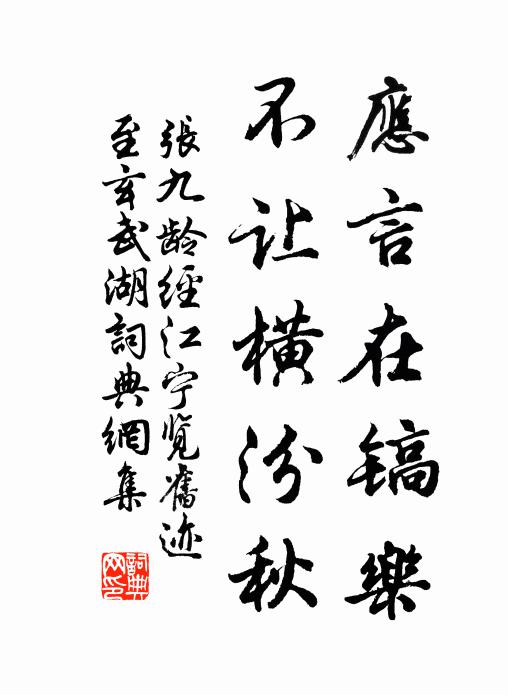 應言在镐樂
不让横汾秋
張九龄經江宁览舊迹
至玄武湖詞典網集
詞典
网印